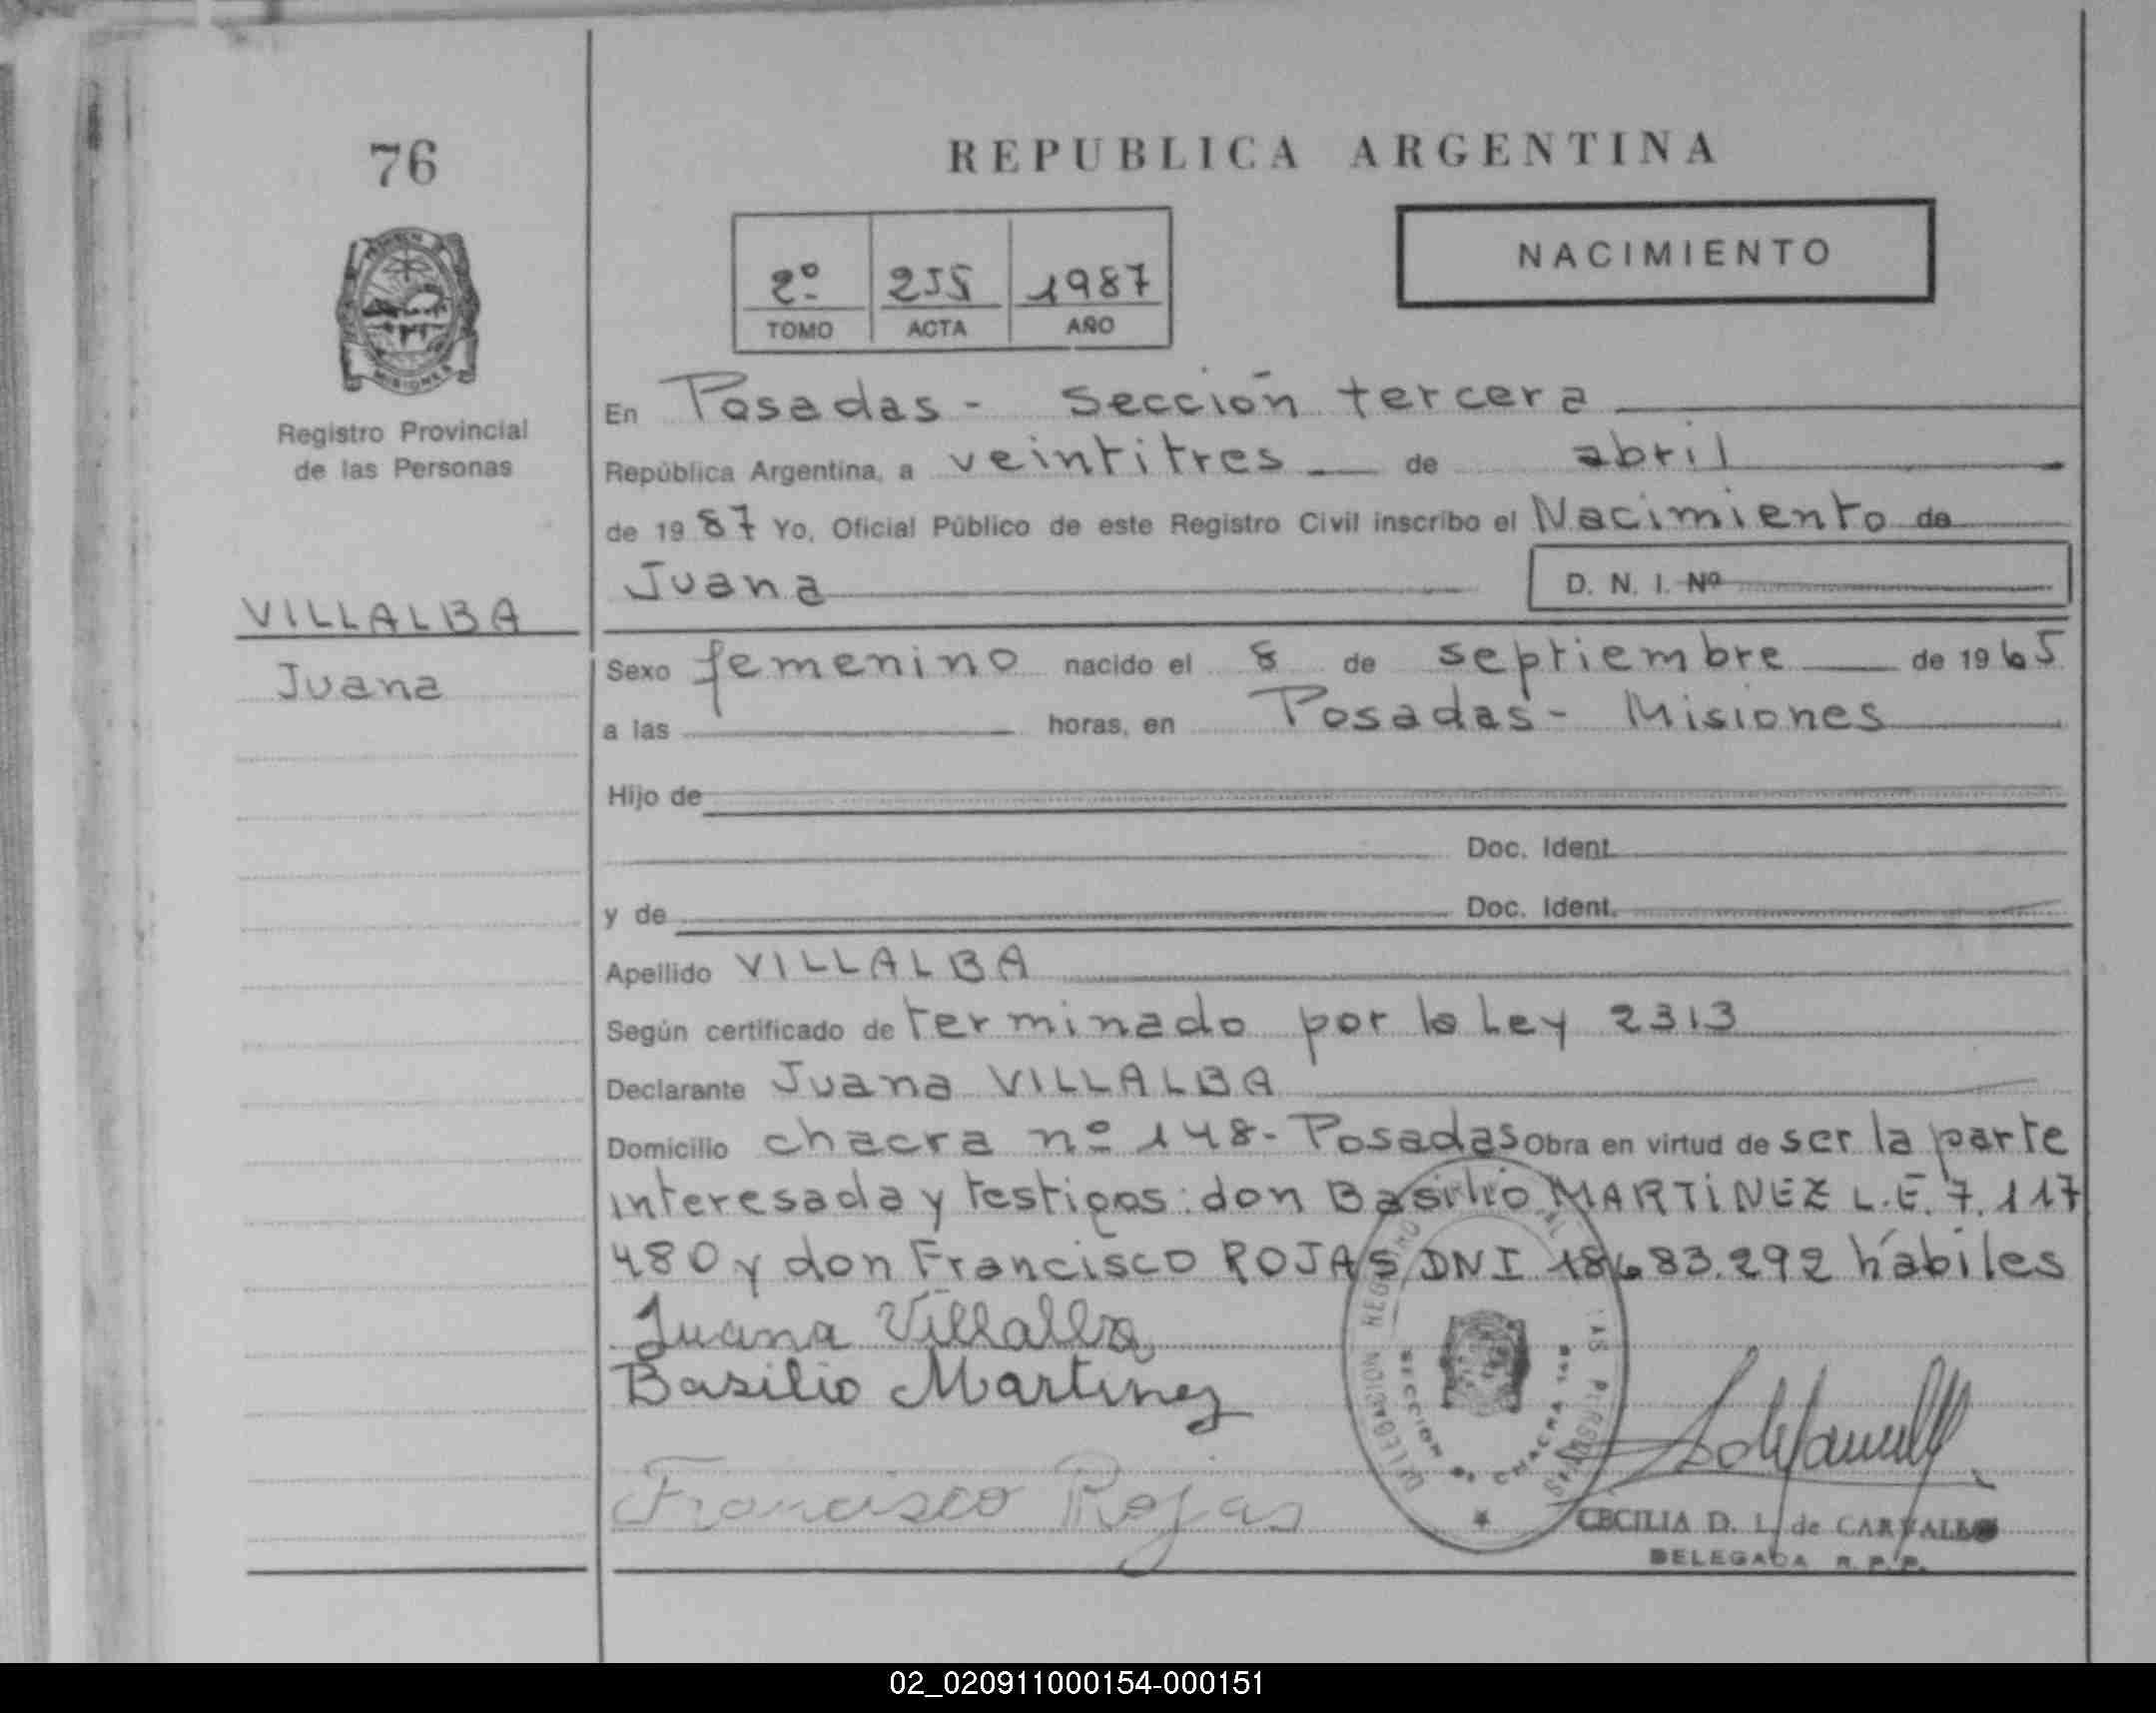 76
REPUBLICA ARGENTINA
NACIMIENTO
2º 255 1987
TOMO ACTA AÑO
MISIONES
Registro Provincial
de las Personas
VILLALBA
Juana
En Posadas - sección tercera
República Argentina, a veintitres de abril
de 1987 Yo, Oficial Público de este Registro Civil inscribo el Nacimiento de
Juana D. N. I. Nº
Sexo femenino nacido el 8 de septiembre de 1965
a las horas, en Posadas - Misiones
Hijo de
Doc. Ident.
y de Doc. Ident.
Apellido VILLALBA
Según certificado de terminado por la Ley 2313
Declarante Juana VILLALBA
Domicilio chacra nº 148- Posadas Obra en virtud de ser la parte
interesada y testigos: don Basilio MARTINEZ L.E. 7.117
480 y don Francisco ROJAS DNI 18683.292 hábiles
Juana Villalba
Basilio Martinez
Francisco Rojas
DELEGACION REGISTRO LAS PERSONAS
SECCION CHACRA
CECILIA D. L. de CARVALLO
DELEGADA R. P. P.
02_020911000154-000151